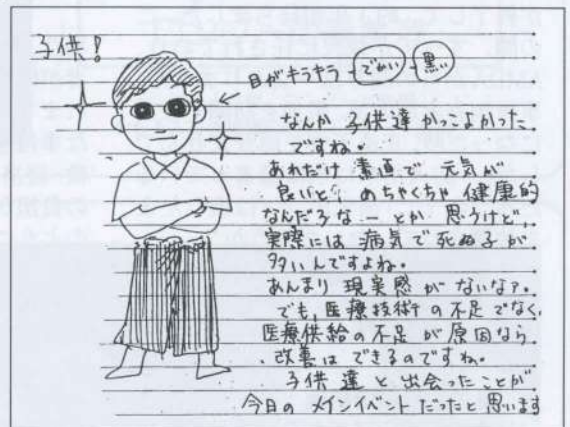 子供!
目がキラキラ でかい 黒い
なんか 子供達 かっこよかった
ですね。
あれだけ 素直で 元気が
良いと、めちゃくちゃ 健康的
なんだろなーとか 思うけど、
実際には 病気で 死ぬ子が
多いんですよね。
あんまり 現実感 が ないなァ。
でも、医療技術の不足でなく、
医療供給の不足が原因なら
改善は できるのですね。
子供達と出会ったことが
今日の メインイベント だったと思います